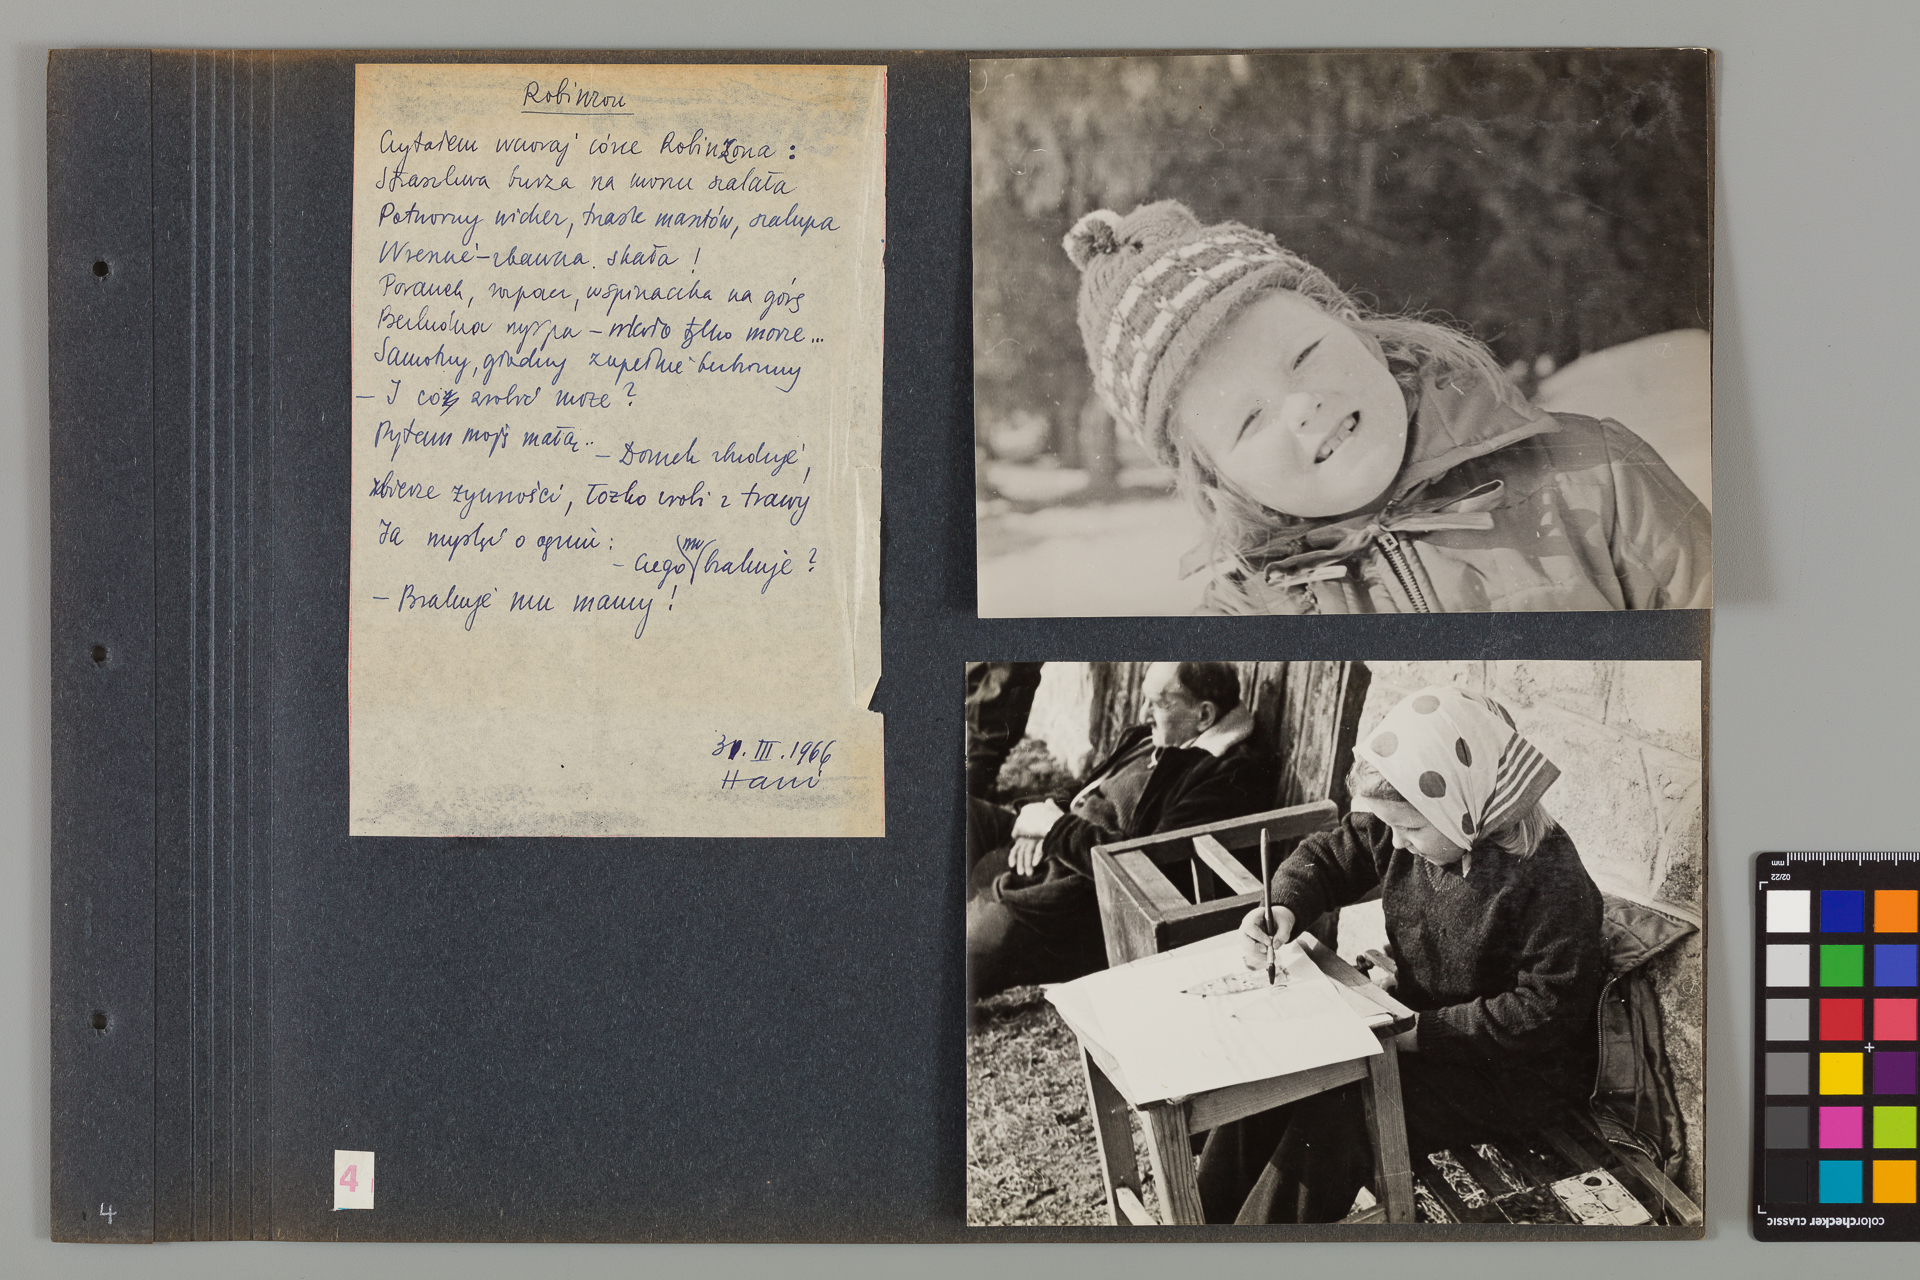 Robinzon
Czytałem wczoraj córce Robinzona :
Straszliwa burza na morzu szalała
Potworny wicher, trzask masztów, szalupa
Wreszcie – zbawcza skała !
Poranek, rozpacz, wspinaczka na górę
Bezludna wyspa – wkoło tylko morze...
Samotny, głodny zupełnie bezbronny
– I cóż zrobić może ?
Pytam moją małą..
– Domek zbuduje,
zbierze żywności, łóżko zrobi z trawy
Ja myślę o ogniu :
– Czego mu brakuje ?
– Brakuje mu mamy !
31. III. 1966
Hani
4
4
mm
02/22
colorchecker CLASSIC